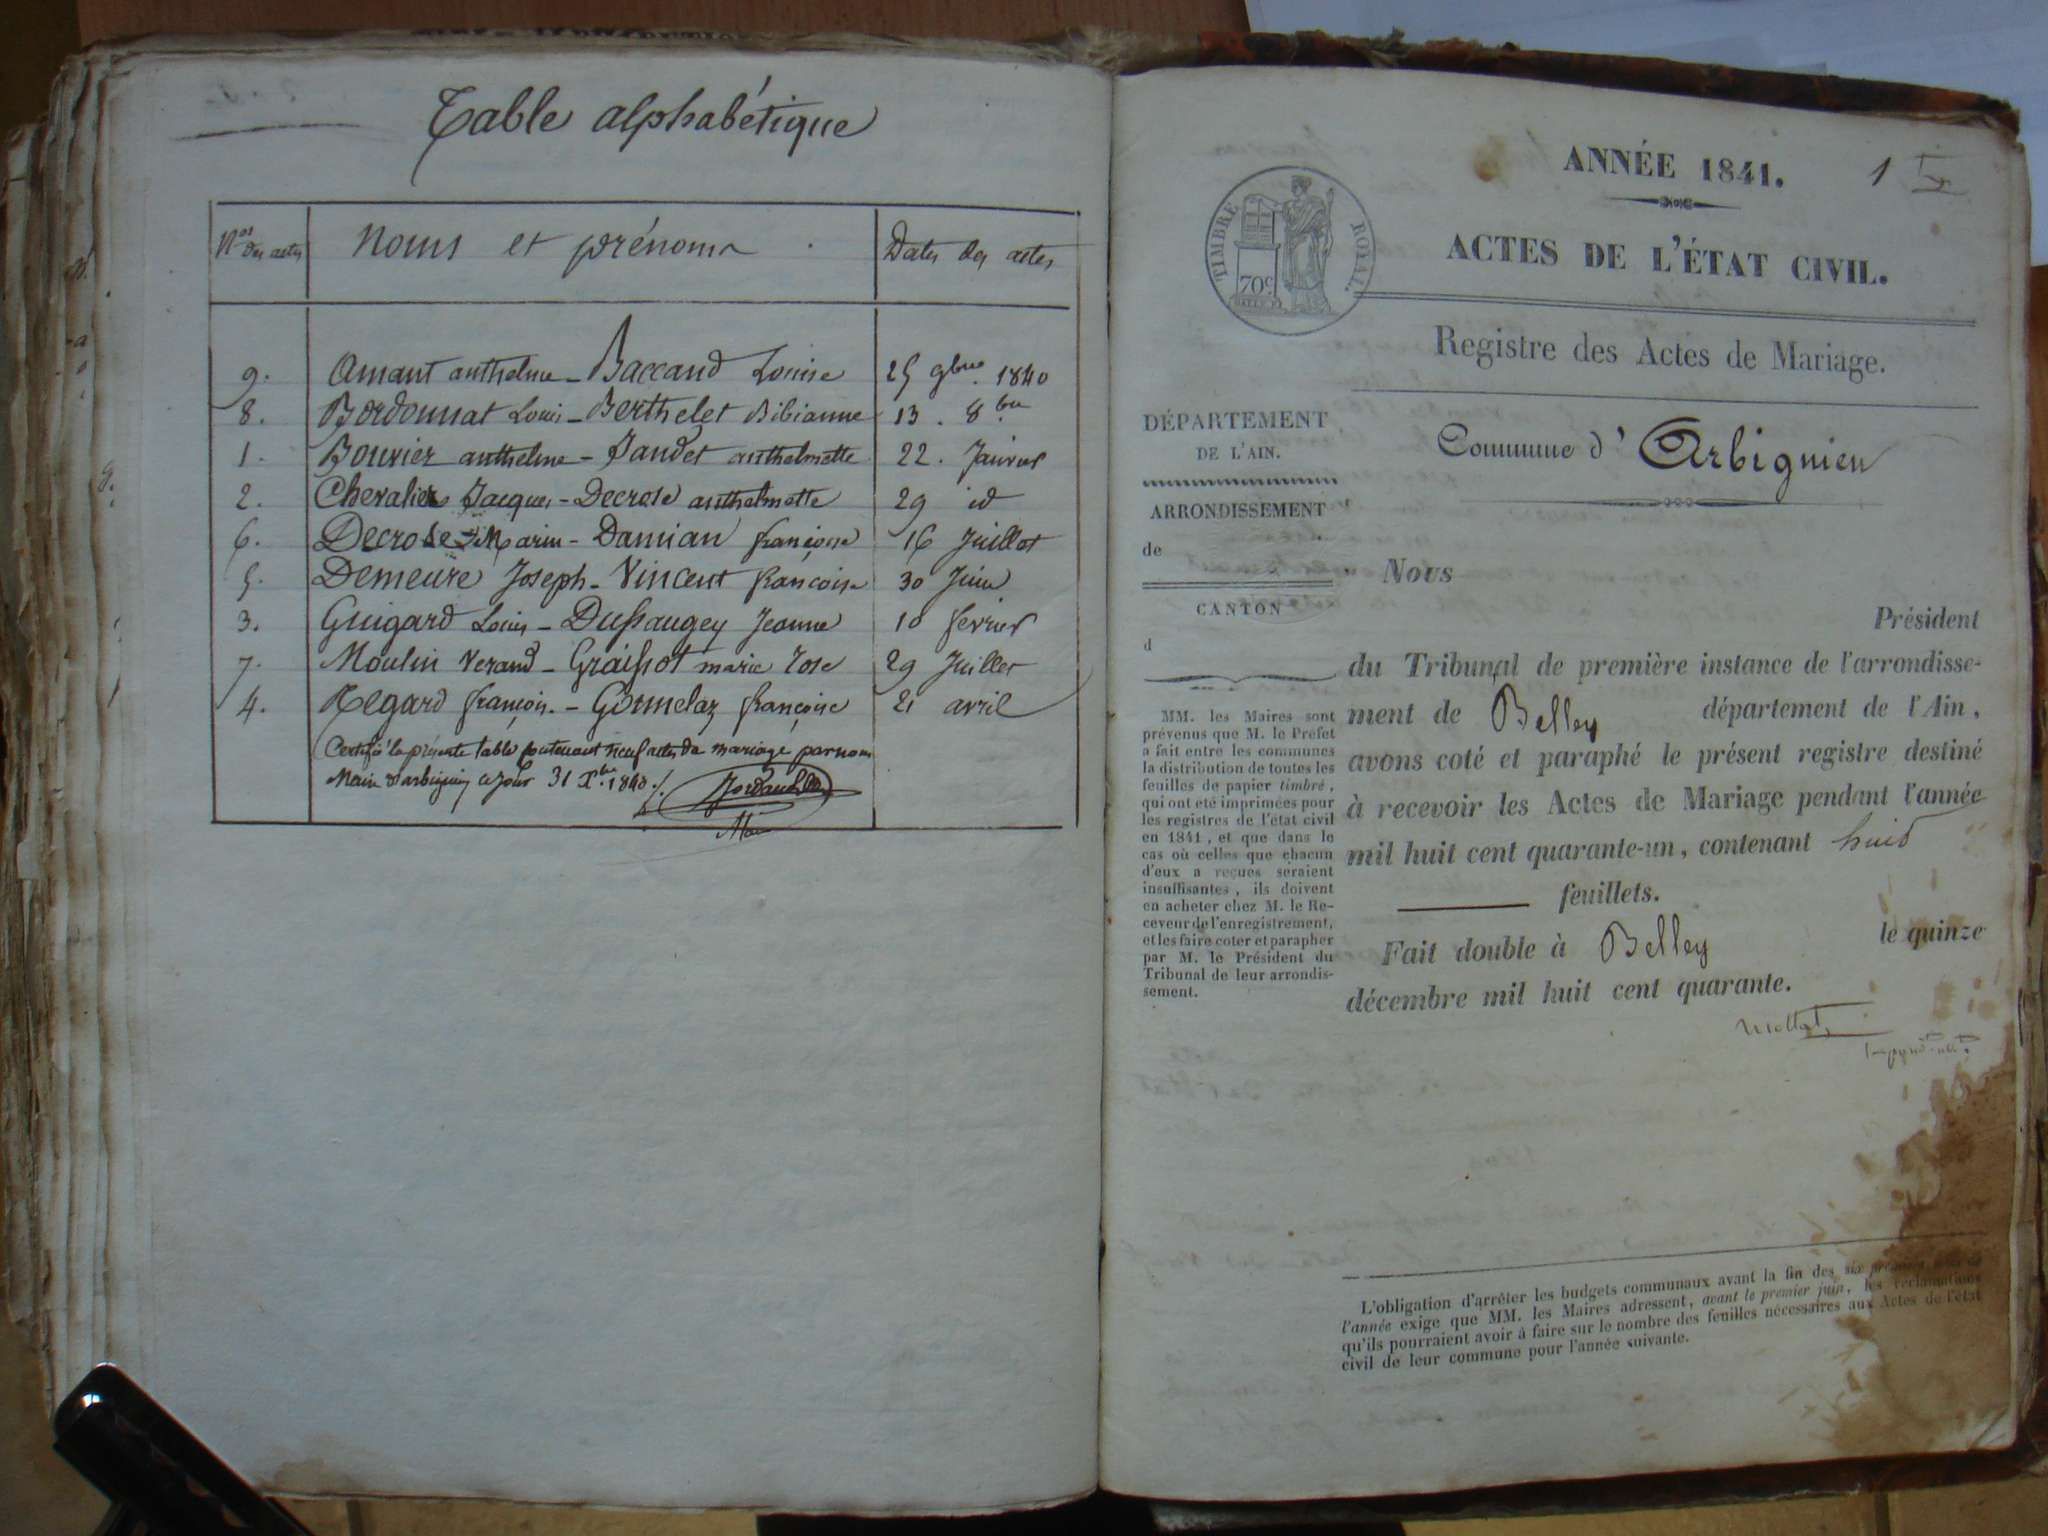 Table alphabétique
Nos des actes Noms et prénoms Dates des actes
9. Amant anthelme - Baccand Louise 25 9bre 1840
8. Bordonnat Louis - Berthelet Bibianne 13. 8bre
1. Bouvier anthelme - Jandet anthelmette 22. Janvier
2. Chevalier Jacques - Decrose anthelmette 29 id
6. Decrose Marin - Damian françoise 16 Juillet
5. Demeure Joseph - Vincent françoise 30 Juin
3. Guigard Louis - Dussaugey Jeanne 10 février
7. Moulin Verand - Graissot marie rose 29 Juillet
4. Regard françois. - Gonnelaz françoise 21 avril
Certifié la présente table contenant neuf actes de mariage par nous
Maire d'arbignieu ce jour 31 Xbre 1840
Maire
ANNÉE 1841. 1
TIMBRE ROYAL.
70c
ACTES DE L'ÉTAT CIVIL.
Registre des Actes de Mariage.
DÉPARTEMENT
DE L'AIN.
ARRONDISSEMENT
de
CANTON
d
MM. les Maires sont
prévenus que M. le Préfet
a fait entre les communes
la distribution de toutes les
feuilles de papier timbré,
qui ont été imprimées pour
les registres de l'état civil
en 1841, et que dans le
cas où celles que chacun
d'eux a reçues seraient
insuffisantes, ils doivent
en acheter chez M. le Re-
ceveur de l'enregistrement,
et les faire coter et parapher
par M. le Président du
Tribunal de leur arrondis-
sement.
Commune d'Arbignieu
Nous
Président
du Tribunal de première instance de l'arrondisse-
ment de Belley département de l'Ain,
avons coté et paraphé le présent registre destiné
à recevoir les Actes de Mariage pendant l'année
mil huit cent quarante-un, contenant huit
feuillets.
Fait double à Belley le quinze
décembre mil huit cent quarante.
L'obligation d'arrêter les budgets communaux avant la fin des six premiers mois de
l'année exige que MM. les Maires adressent, avant le premier juin, les réclamations
qu'ils pourraient avoir à faire sur le nombre des feuilles nécessaires aux Actes de l'état
civil de leur commune pour l'année suivante.